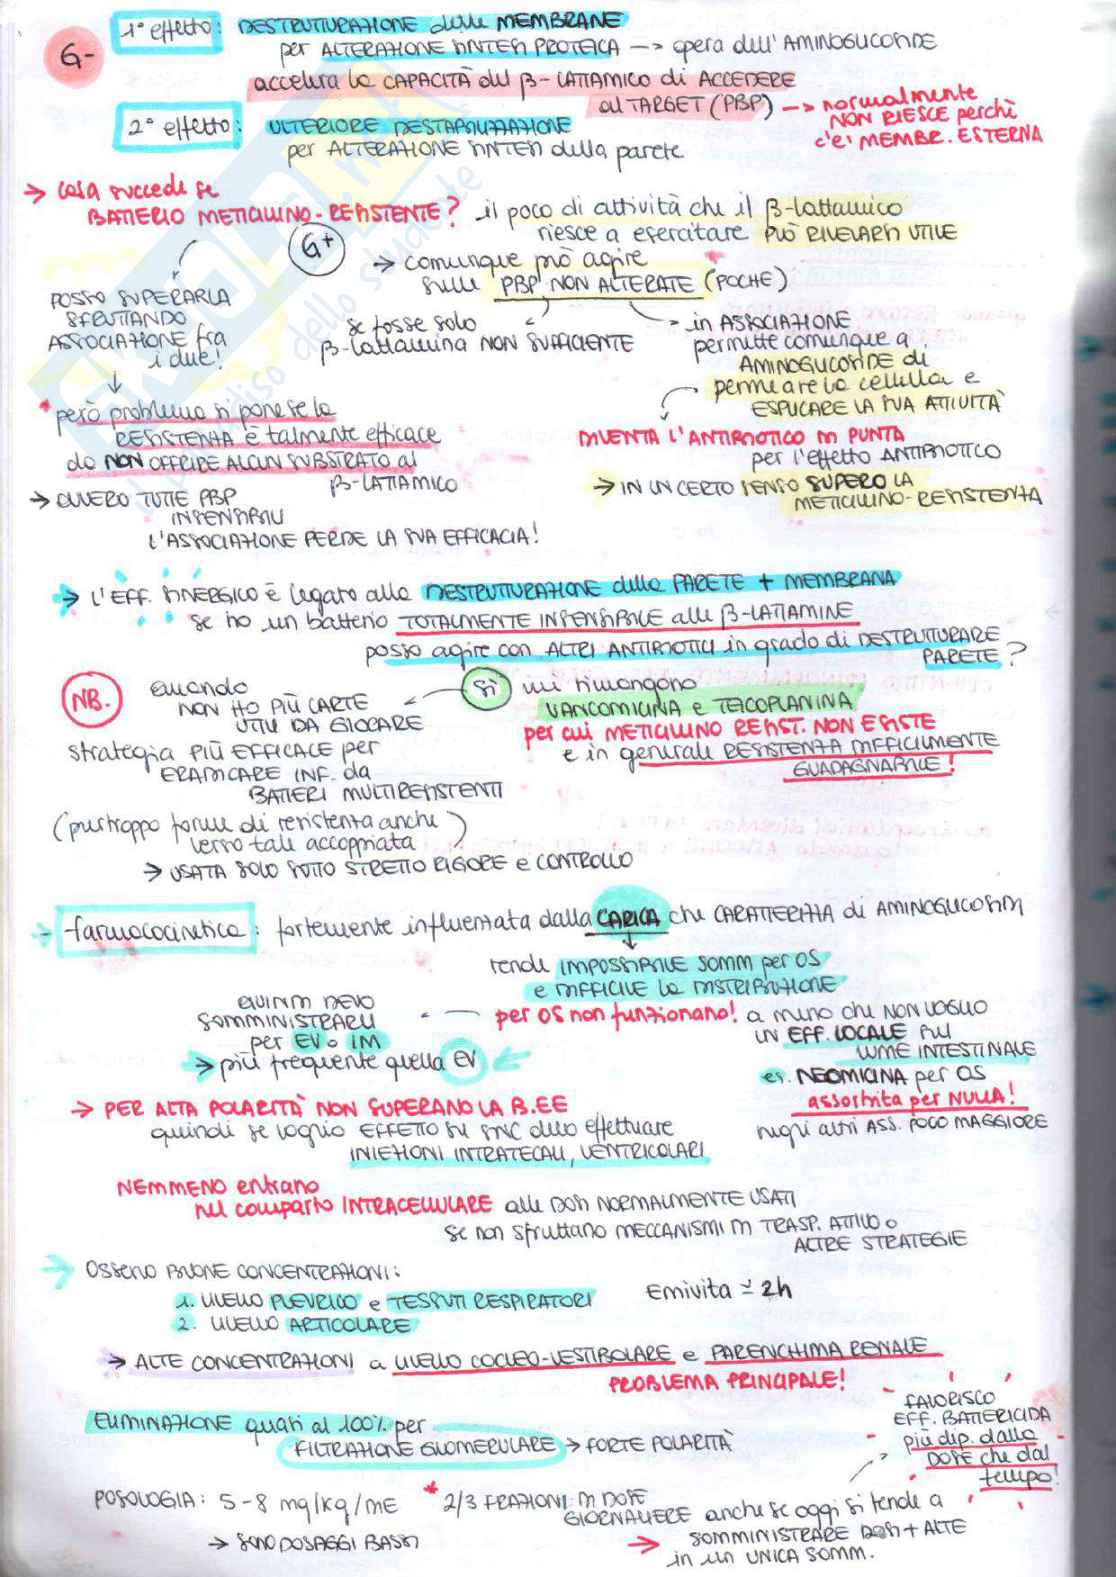 G-
1° effetto: DESTRUTTURAZIONE delle MEMBRANE
per ALTERAZIONE SINTESI PROTEICA → opera dell'AMINOGLICOSIDE
accelera la CAPACITÀ del β-LATTAMICO di ACCEDERE
al TARGET (PBP) → normalmente
NON RIESCE perchè
c'e' MEMBR. ESTERNA
2° effetto: ULTERIORE DESTABILIZZAZIONE
per ALTERAZIONE SINTESI della parete
→ cosa succede se
BATTERIO METICILLINO-RESISTENTE?
G+
il poco di attività che il β-lattamico
riesce a esercitare PUÒ RIVELARSI UTILE
→ comunque può agire
sulle PBP NON ALTERATE (POCHE)
POSSO SUPERARLA
SFRUTTANDO
ASSOCIAZIONE fra
i due!
se fosse solo
β-lattamina NON SUFFICIENTE
in ASSOCIAZIONE
permette comunque a
AMINOGLICOSIDE di
permeare la cellula e
ESPLICARE LA SUA ATTIVITÀ
* però problema si pone se la
RESISTENZA è talmente efficace
da NON OFFRIRE ALCUN SUBSTRATO al
β-LATTAMICO
→ OVVERO TUTTE PBP
INSENSIBILI
L'ASSOCIAZIONE PERDE LA SUA EFFICACIA!
DIVENTA L'ANTIBIOTICO DI PUNTA
per l'effetto ANTIBIOTICO
→ IN UN CERTO SENSO SUPERO LA
METICILLINO-RESISTENZA
→ L'EFF. SINERGICO è legato alla DESTRUTTURAZIONE della PARETE + MEMBRANA
se ho un batterio TOTALMENTE INSENSIBILE alle β-LATTAMINE
posso agire con ALTRI ANTIBIOTICI in grado di DESTRUTTURARE
PARETE?
NB.
quando
NON HO PIÙ CARTE
UTILI DA GIOCARE
strategia PIÙ EFFICACE per
ERADICARE INF. da
BATTERI MULTIRESISTENTI
(purtroppo forme di resistenza anche)
verso tale accoppiata
→ USATA SOLO SOTTO STRETTO RIGORE e CONTROLLO
SI mi rimangono
VANCOMICINA e TEICOPLANINA
per cui METICILLINO RESIST. NON ESISTE
e in generale RESISTENZA DIFFICILMENTE
GUADAGNABILE!
→ farmacocinetica: fortemente influenzata dalla CARICA che CARATTERIZZA gli AMINOGLICOSIDI
rende IMPOSSIBILE SOMM per OS
e DIFFICILE la DISTRIBUZIONE
QUINDI DEVO
SOMMINISTRARLI
per EV o IM
→ più frequente quella EV
per OS non funzionano! a meno che NON VOGLIO
UN EFF. LOCALE sul
LUME INTESTINALE
es. NEOMICINA per OS
assorbita per NULLA!
negli altri ASS. POCO MAGGIORE
→ PER ALTA POLARITÀ NON SUPERANO LA B.EE
quindi se voglio EFFETTO SU SNC devo effettuare
INIEZIONI INTRATECALI, VENTRICOLARI
NEMMENO entrano
nel comparto INTRACELLULARE alle DOSI NORMALMENTE USATI
se non sfruttano MECCANISMI DI TRASP. ATTIVO o
ALTRE STRATEGIE
→ OSSERVO BUONE CONCENTRAZIONI:
1. LIVELLO PLEURICO e TESSUTI RESPIRATORI
2. LIVELLO ARTICOLARE
Emivita ≃ 2h
→ ALTE CONCENTRAZIONI a LIVELLO COCLEO-VESTIBOLARE e PARENCHIMA RENALE
PROBLEMA PRINCIPALE!
ELIMINAZIONE quasi al 100% per
FILTRAZIONE GLOMERULARE → FORTE POLARITÀ
FAVORISCO
EFF. BATTERICIDA
più dip. dalla
DOSE che dal
tempo!
POSOLOGIA: 5-8 mg/kg/DIE
→ SONO DOSAGGI BASSI
* 2/3 FRAZIONI DI DOSE
GIORNALIERE anche se oggi si tende a
→ SOMMINISTRARE DOSI + ALTE
in un UNICA SOMM.